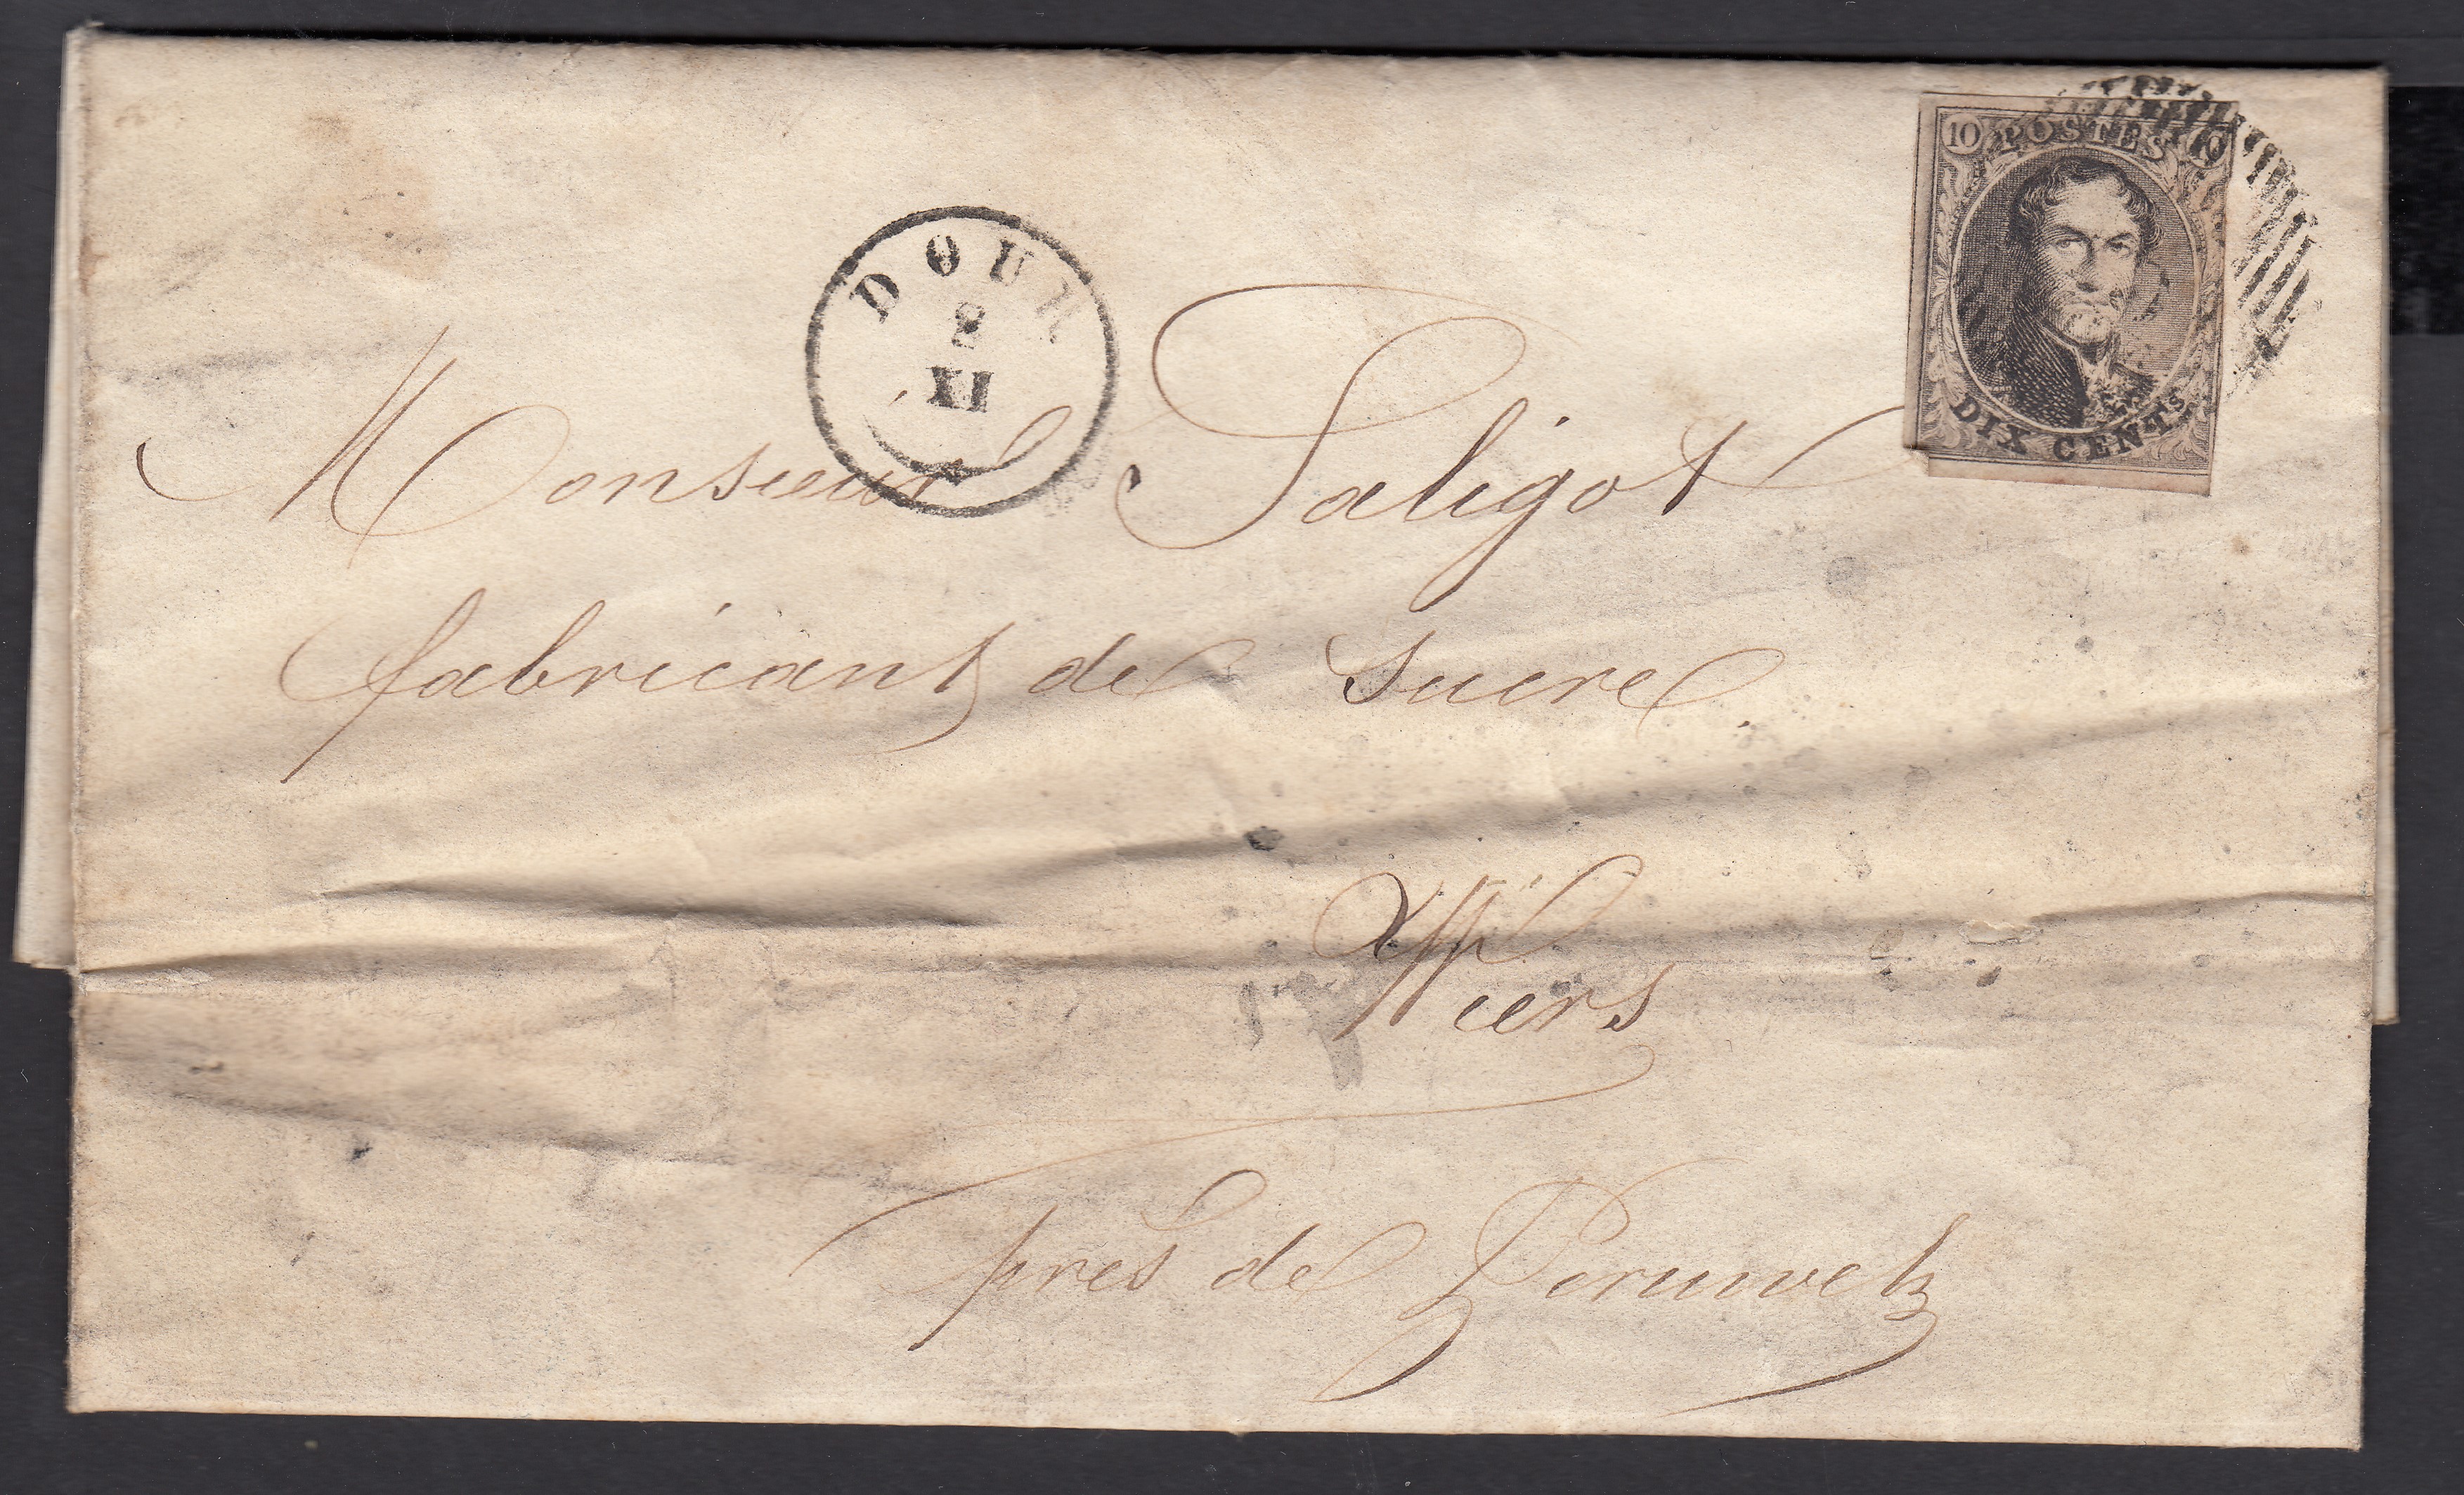 10 POSTES 10
DIX CENTS
DOUR
8
XI
Monsieur Saligot
fabricant de sucre
Wiers
près de Peruwelz